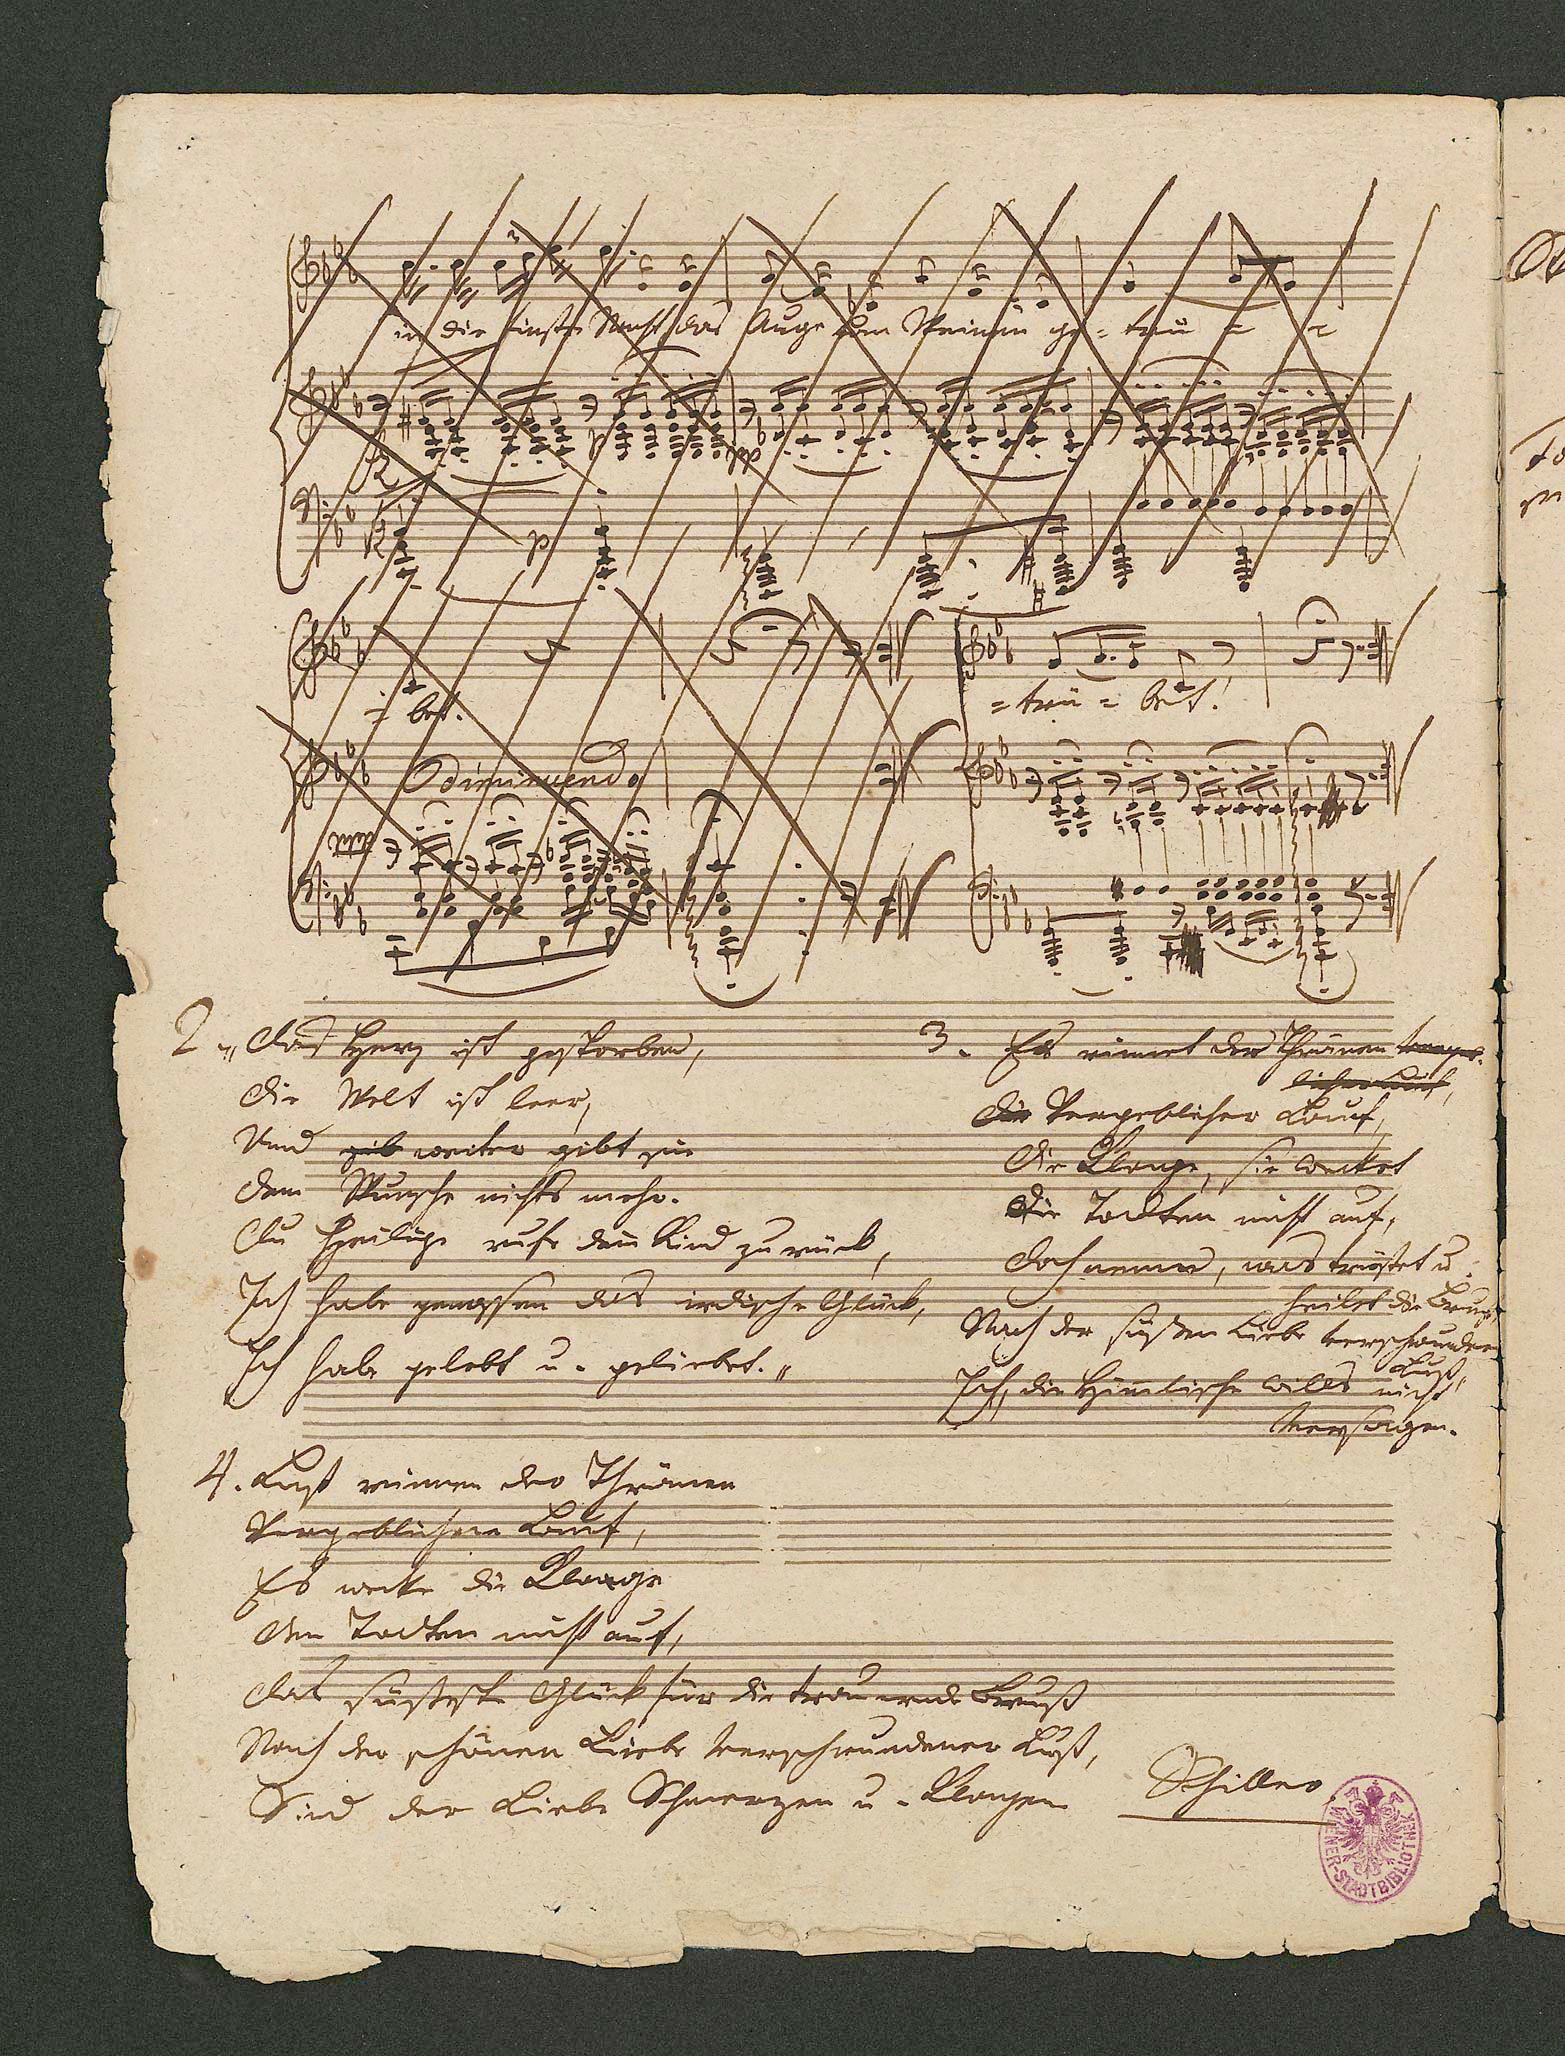 in die finstre Nacht das Auge vom Weinen ge= trü = =
p
pp
p
= bet.
= trü = bet!
diminuendo
ppp
2. „Das Herz ist gestorben,
die Welt ist leer,
Und weiter gibt sie
dem Wunsche nichts mehr.
Du Heilige rufe dein Kind zurück,
Ich habe genossen das irdische Glück,
Ich habe gelebt u. geliebet.“
3. Es rinnet der Thränen
Vergeblicher Lauf,
Die Klage, sie wecket
Die Todten nicht auf,
Doch nenne, was tröstet u.
heilet die Brust
Nach der süßen Liebe verschwundner
Lust,
Ich, die Himmlische wills nicht
versagen.
4. Laß rinnen der Thränen
Vergeblichen Lauf,
Es wecke die Klage
Den Todten nicht auf,
Das süßeste Glück für die trauernde Brust
Nach der schönen Liebe verschwundener Lust,
Sind der Liebe Schmerzen u. Klagen
Schiller
WIENER-STADTBIBLIOTHEK